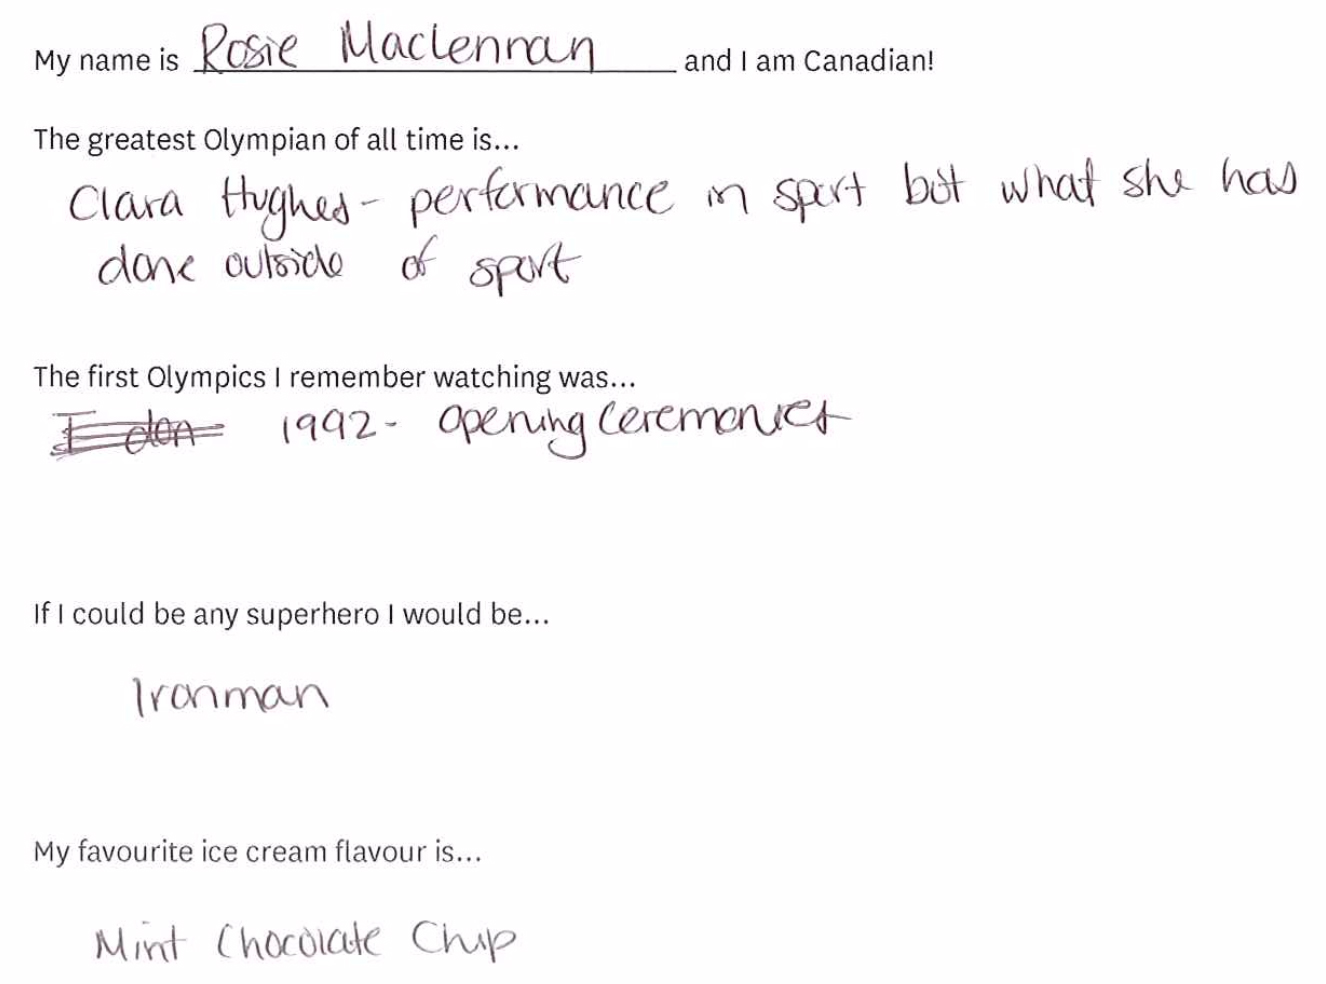 My name is Rosie Maclennan and I am Canadian!
The greatest Olympian of all time is...
Clara Hughes - performance in sport but what she has
done outside of sport
The first Olympics I remember watching was...
I don 1992 - Opening Ceremonies
If I could be any superhero I would be...
Ironman
My favourite ice cream flavour is...
Mint Chocolate Chip